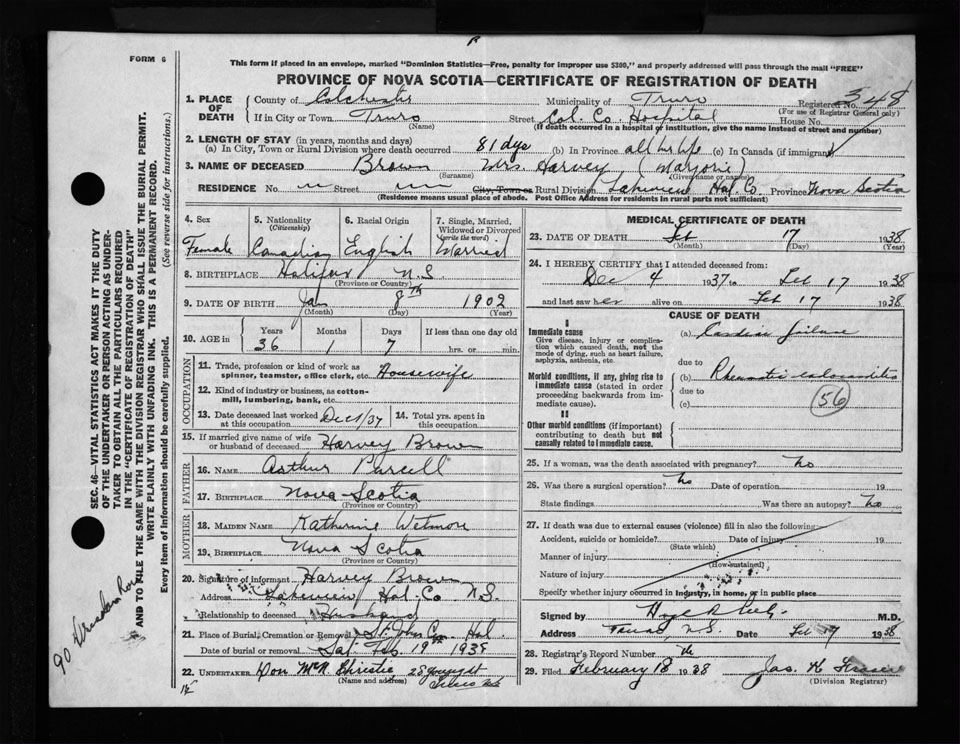 FORM 6
This form if placed in an envelope, marked "Dominion Statistics—Free, penalty for improper use $300," and properly addressed will pass through the mail "FREE"
PROVINCE OF NOVA SCOTIA—CERTIFICATE OF REGISTRATION OF DEATH
1. PLACE OF DEATH County of Colchester Municipality of Truro Registered No. 348
(For use of Registrar General only)
If in City or Town Truro Street Col. Co. Hospital House No.
(Name) (If death occurred in a hospital or institution, give the name instead of street and number)
2. LENGTH OF STAY (in years, months and days)
(a) In City, Town or Rural Division where death occurred 81 dys (b) In Province all her life (c) In Canada (if immigrant)
3. NAME OF DECEASED Brown Mrs. Harvey Marjorie
(Surname) (Given name or names)
RESIDENCE No. Street City, Town or Rural Division Lakeview Hal. Co. Province Nova Scotia
(Residence means usual place of abode. Post Office Address for residents in rural parts not sufficient)
4. Sex 5. Nationality 6. Racial Origin 7. Single, Married,
(Citizenship) Widowed or Divorced
(write the word)
Female Canadian English Married
8. BIRTHPLACE Halifax N.S.
(Province or Country)
9. DATE OF BIRTH Jan 8th 1902
(Month) (Day) (Year)
10. AGE in Years Months Days If less than one day old
36 1 7 hrs. or min.
OCCUPATION
11. Trade, profession or kind of work as
spinner, teamster, office clerk, etc. Housewife
12. Kind of industry or business, as cotton-
mill, lumbering, bank, etc.
13. Date deceased last worked at this occupation Dec 1/37 14. Total yrs. spent in this occupation
15. If married give name of wife
or husband of deceased Harvey Brown
FATHER
16. NAME Arthur Purcell
17. BIRTHPLACE Nova Scotia
(Province or Country)
MOTHER
18. MAIDEN NAME Katherine Wetmore
19. BIRTHPLACE Nova Scotia
(Province or Country)
20. Signature of informant Harvey Brown
Address Lakeview Hal. Co N.S.
Relationship to deceased Husband
21. Place of Burial, Cremation or Removal St. John Cem. Hal.
Date of burial or removal Sat Feb 19th 1938
22. UNDERTAKER Don McN Christie
(Name and address)
MEDICAL CERTIFICATE OF DEATH
23. DATE OF DEATH Feb 17 1938
(Month) (Day) (Year)
24. I HEREBY CERTIFY that I attended deceased from:
Dec 4 1937 to Feb 17 1938
and last saw her alive on Feb 17 1938
CAUSE OF DEATH
I
Immediate cause
Give disease, injury or complica-
tion which caused death, not the
mode of dying, such as heart failure,
asphyxia, asthenia, etc.
(a) Cardiac failure
due to
Morbid conditions, if any, giving rise to
immediate cause (stated in order
proceeding backwards from im-
mediate cause).
(b) Rheumatic endocarditis
due to
(c)
56
II
Other morbid conditions (if important)
contributing to death but not
causally related to immediate cause.
25. If a woman, was the death associated with pregnancy? No
26. Was there a surgical operation? No Date of operation 19
State findings Was there an autopsy? No
27. If death was due to external causes (violence) fill in also the following:
Accident, suicide or homicide? Date of injury 19
(State which)
Manner of injury
(How sustained)
Nature of injury
Specify whether injury occurred in industry, in home, or in public place
Signed by M.D.
Address Truro, N.S. Date Feb 17 1938
28. Registrar's Record Number
29. Filed February 18 1938 Jas. H. Fraser
(Division Registrar)
SEC. 46—VITAL STATISTICS ACT MAKES IT THE DUTY
OF THE UNDERTAKER OR PERSON ACTING AS UNDER-
TAKER TO OBTAIN ALL THE PARTICULARS REQUIRED
IN THE "CERTIFICATE OF REGISTRATION OF DEATH"
AND TO FILE THE SAME WITH THE DIVISION REGISTRAR WHO SHALL ISSUE THE BURIAL PERMIT.
WRITE PLAINLY WITH UNFADING INK. THIS IS A PERMANENT RECORD.
Every item of information should be carefully supplied. (See reverse side for instructions.)